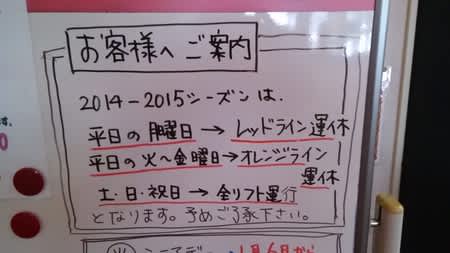 お客様へご案内
2014-2015シーズンは、
平日の月曜日→レッドライン運休
平日の火〜金曜日→オレンジライン
運休
土・日・祝日→全リフト運行
となります。予めご了承下さい。
1月6日から